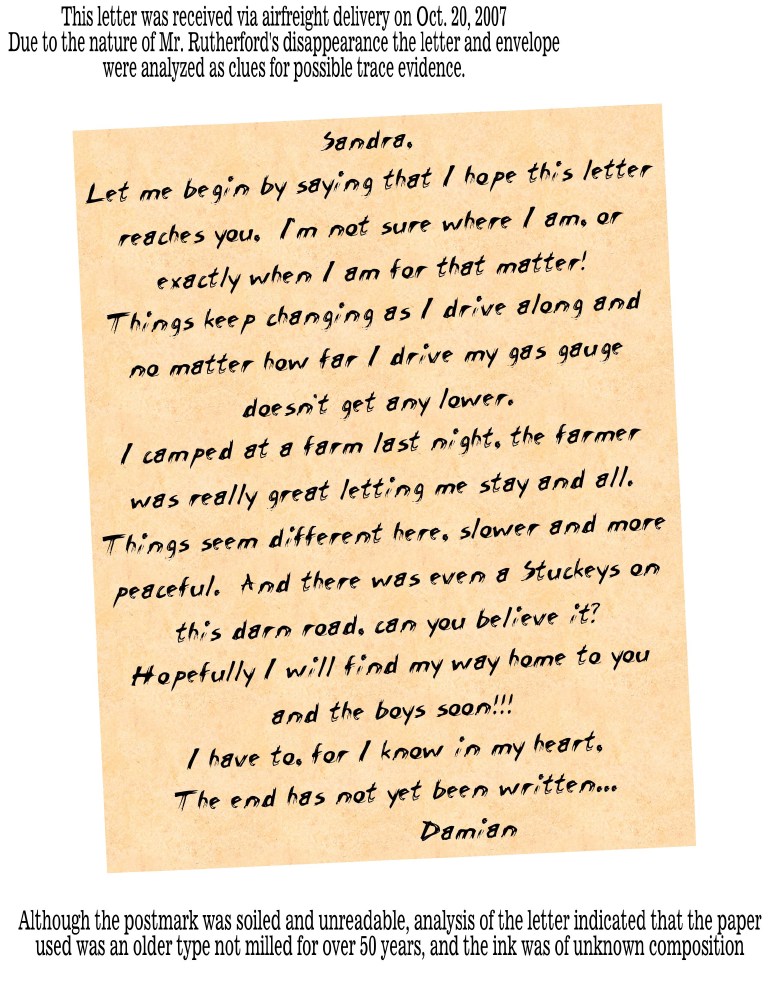 This letter was received via airfreight delivery on Oct. 20, 2007
Due to the nature of Mr. Rutherford's disappearance the letter and envelope
were analyzed as clues for possible trace evidence.
Sandra,
Let me begin by saying that I hope this letter
reaches you. I'm not sure where I am, or
exactly when I am for that matter!
Things keep changing as I drive along and
no matter how far I drive my gas gauge
doesn't get any lower.
I camped at a farm last night, the farmer
was really great letting me stay and all.
Things seem different here, slower and more
peaceful. And there was even a Stuckeys on
this darn road, can you believe it?
Hopefully I will find my way home to you
and the boys soon!!!
I have to, for I know in my heart,
The end has not yet been written...
Damian
Although the postmark was soiled and unreadable, analysis of the letter indicated that the paper
used was an older type not milled for over 50 years, and the ink was of unknown composition